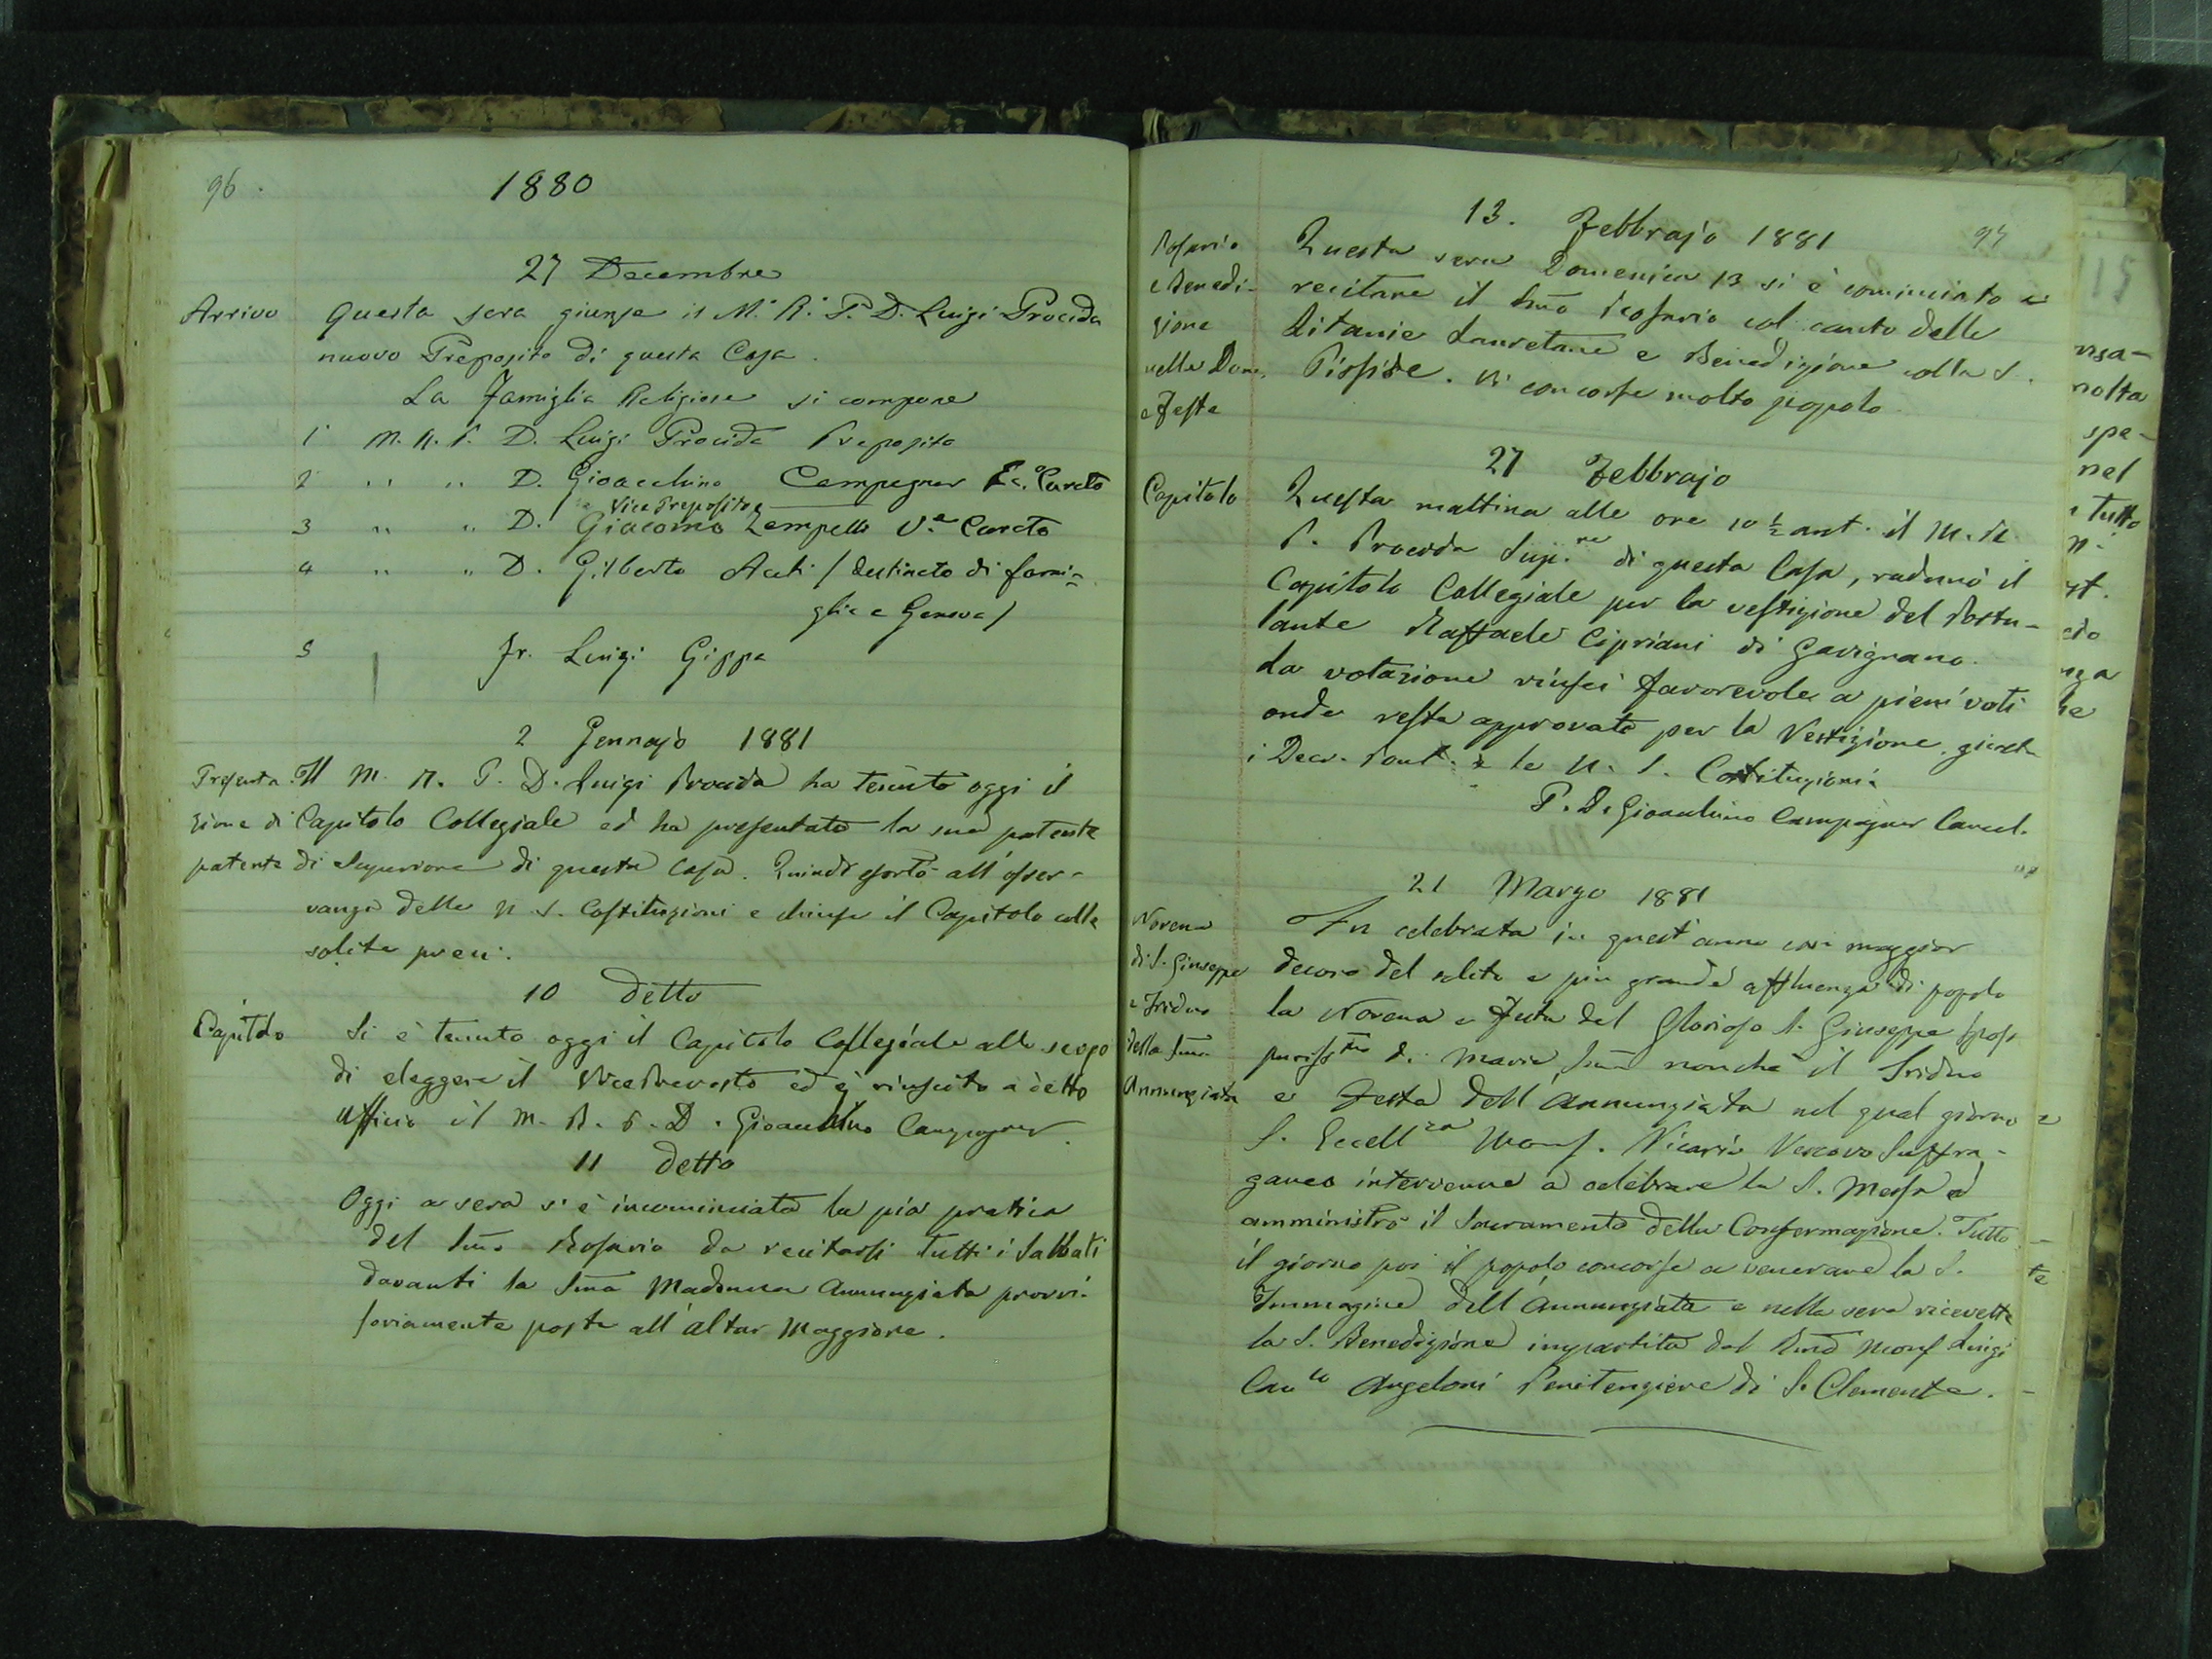 96.
1880
27 Decembre
Arrivo
Questa sera giunse il M. R. P. D. Luigi Procida
nuovo Preposito di questa Casa.
La Famiglia Religiosa si compone
1 M. R. P. D. Luigi Procida Preposito
2 " " D. Gioacchino Campagner Ec.º Curato
e Vice Preposito
3 " " D. Giacomo Zampella V.e Curato
4 " " D. Gilberto Aceti / destinato di fami=
glia a Genova /
5 Fr. Luigi Gippa
2 Gennajo 1881
Presenta
zione di
patente
Il M. R. P. D. Luigi Procida ha tenuto oggi il
Capitolo Collegiale ed ha presentato la sua patente
di Superiore di questa Casa. Quindi esortò all'osser-
vanza delle N. S. Costituzioni e chiuse il Capitolo colle
solite preci.
10 detto
Capitolo
Si è tenuto oggi il Capitolo Collegiale allo scopo
di eleggere il Vice Prevosto ed è riuscito a detto
Ufficio il M. R. P. D. Gioacchino Campagner.
11 detto
Oggi a sera si è incominciata la pia pratica
del Smo Rosario da recitarsi tutti i Sabbati
davanti la Sma Madonna Annunziata provvi-
soriamente posta all'altar Maggiore.
97
13. Febbrajo 1881
Rosario
e Benedi-
zione
nelle Dom.
e Feste
Questa sera Domenica 13 si è cominciato a
recitare il Smo Rosario col canto delle
Litanie Lauretane e Benedizione colla S.
Pisside. Vi concorse molto popolo.
27 Febbrajo
Capitolo
Questa mattina alle ore 10 ½ ant. il M. R.
P. Procida Sup.re di questa Casa, radunò il
Capitolo Collegiale per la vestizione del Postu-
lante Raffaele Cipriani di Gavignano.
La votazione riuscì favorevole a pieni voti
onde resta approvato per la Vestizione giusta
i Decr. Pont. e le N. S. Costituzioni.
P. D. Gioacchino Campagner Cancel.
21 Marzo 1881
Novena
di S. Giuseppe
e Triduo
della Sma
Annunziata
Fu celebrata in quest'anno con maggior
decoro del solito e più grande affluenza di popolo
la Novena e Festa del Glorioso S. Giuseppe Sposo
puriss.mo di Maria Sma nonchè il Triduo
e Festa dell'Annunziata nel qual giorno
S. Eccell.za Mons. Vicario Vescovo Suffra-
ganeo intervenne a celebrare la S. Messa ed
amministrò il Sacramento della Confermazione. Tutto
il giorno poi il popolo concorse a venerare la S.
Immagine dell'Annunziata e nella sera ricevette
la S. Benedizione impartita dal Rmo Mons Luigi
Can.co Angeloni Penitenziere di S. Clemente.